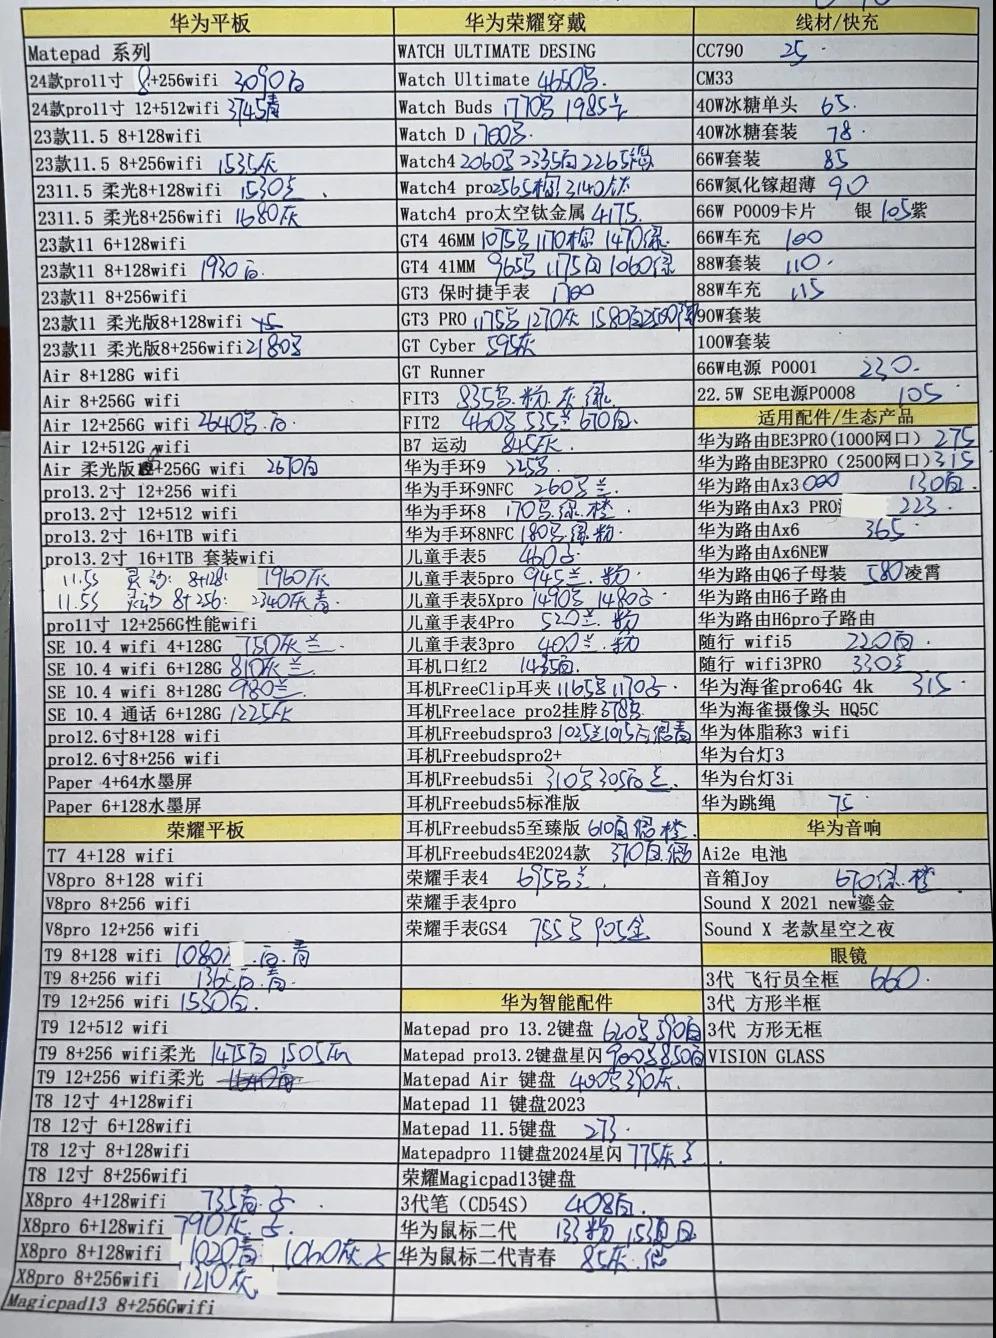 华为平板
Matepad 系列
24款pro11寸 8+256wifi 3090白
24款pro11寸 12+512wifi 3745青
23款11.5 8+128wifi
23款11.5 8+256wifi 1535灰
2311.5 柔光8+128wifi 1530
2311.5 柔光8+256wifi 1680灰
23款11 6+128wifi
23款11 8+128wifi 1930白
23款11 8+256wifi
23款11 柔光版8+128wifi
23款11 柔光版8+256wifi 2180
Air 8+128G wifi
Air 8+256G wifi
Air 12+256G wifi 2640 白
Air 12+512G wifi
Air 柔光版 +256G wifi 2670白
pro13.2寸 12+256 wifi
pro13.2寸 12+512 wifi
pro13.2寸 16+1TB wifi
pro13.2寸 16+1TB 套装wifi
11.5S 灵动: 8+128: 1960灰
11.5S 灵动 8+256: 2340灰青
pro11寸 12+256G性能wifi
SE 10.4 wifi 4+128G 750灰兰
SE 10.4 wifi 6+128G 810灰兰
SE 10.4 wifi 8+128G 980兰
SE 10.4 通话 6+128G 1225灰
pro12.6寸8+128 wifi
pro12.6寸8+256 wifi
Paper 4+64水墨屏
Paper 6+128水墨屏
荣耀平板
T7 4+128 wifi
V8pro 8+128 wifi
V8pro 8+256 wifi
V8pro 12+256 wifi
T9 8+128 wifi 1080 .白.青
T9 8+256 wifi 1365白.青
T9 12+256 wifi 1530白.
T9 12+512 wifi
T9 8+256 wifi柔光 1475白 1505灰
T9 12+256 wifi柔光
T8 12寸 4+128wifi
T8 12寸 6+128wifi
T8 12寸 8+128wifi
T8 12寸 8+256wifi
X8pro 4+128wifi 735青
X8pro 6+128wifi 790灰
X8pro 8+128wifi 1020青 1060灰
X8pro 8+256wifi 1210灰
Magicpad13 8+256Gwifi
华为荣耀穿戴
WATCH ULTIMATE DESING
Watch Ultimate 4650
Watch Buds 1770 1985
Watch D 1700
Watch4 2060 2235白 2265
Watch4 pro 2565 3140
Watch4 pro太空钛金属 4175.
GT4 46MM 1075 1170棕 1470绿
GT4 41MM 965 1175白 1060绿
GT3 保时捷手表 1700
GT3 PRO 1175 1270灰 1580白
GT Cyber 595灰
GT Runner
FIT3 835 .粉.灰.绿.
FIT2 460 535兰 670白.
B7 运动 845灰.
华为手环9 225
华为手环9NFC 260 兰.
华为手环8 170 .绿.橙
华为手环8NFC 180 .绿.粉
儿童手表5 460
儿童手表5pro 945兰.粉
儿童手表5Xpro 1490 1480
儿童手表4Pro 520兰.粉
儿童手表3pro 400兰.粉
耳机口红2 1435白.
耳机FreeClip耳夹 1165 1170
耳机Freelace pro2挂脖 378
耳机Freebudspro3 1025 1015
耳机Freebudspro2+
耳机Freebuds5i 310 305白 兰.
耳机Freebuds5标准版
耳机Freebuds5至臻版 610白 银 橙.
耳机Freebuds4E2024款 370白.
荣耀手表4 695 兰.
荣耀手表4pro
荣耀手表GS4 755 905金
华为智能配件
Matepad pro 13.2键盘 620 590白
Matepad pro13.2键盘星闪 900 850白
Matepad Air 键盘 400 390灰.
Matepad 11 键盘2023
Matepad 11.5键盘 273.
Matepadpro 11键盘2024星闪 775灰
荣耀Magicpad13键盘
3代笔（CD54S） 408白.
华为鼠标二代 133粉 153白
华为鼠标二代青春 85灰.
线材/快充
CC790 25
CM33
40W冰糖单头 65.
40W冰糖套装 78.
66W套装 85
66W氮化镓超薄 90
66W P0009卡片 银 105紫
66W车充 100
88W套装 110.
88W车充 115
90W套装
100W套装
66W电源 P0001 230.
22.5W SE电源P0008 105
适用配件/生态产品
华为路由BE3PRO(1000网口) 275
华为路由BE3PRO (2500网口) 315
华为路由Ax3 130白.
华为路由Ax3 PRO 223.
华为路由Ax6 365.
华为路由Ax6NEW
华为路由Q6子母装 580凌霄
华为路由H6子路由
华为路由H6pro子路由
随行 wifi5 220白.
随行 wifi3PRO 330
华为海雀pro64G 4k 315.
华为海雀摄像头 HQ5C
华为体脂称3 wifi
华为台灯3
华为台灯3i
华为跳绳 75
华为音响
Ai2e 电池
音箱Joy 670绿.橙
Sound X 2021 new鎏金
Sound X 老款星空之夜
眼镜
3代 飞行员全框 660.
3代 方形半框
3代 方形无框
VISION GLASS